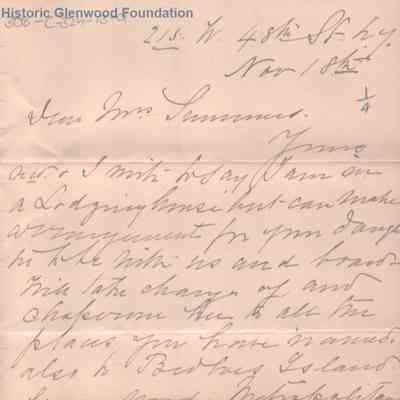 Historic Glenwood Foundation
215. W. 48th St. N.Y.
Nov 18th
1/4
Dear Mrs Summers.
Yours
rec. & I write to say I am in
a Lodging house but can make
arrangement for your
to be with us and board
will take charge of and
chaperone her to all the
places you have named.
also to Bedloes Island
Metropolitan